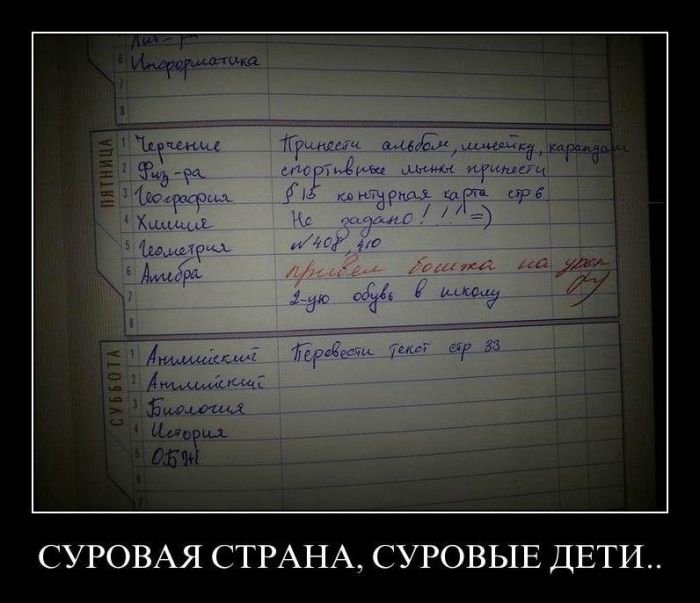 Лит-ра
6 Информатика
7
8
ПЯТНИЦА
1 Черчение Принести альбом, линейку, карандаш
2 Физ-ра спортивные лыжи принести
3 География § 15 контурная карта стр 6
4 Химия Не задано!!! =)
5 Геометрия № 408, 410
6 Алгебра привел бомжа на урок
7 2-ую обувь в школу
8
СУББОТА
1 Английский Перевести текст стр 33
2 Английский
3 Биология
4 История
5 ОБЖ
6
7
СУРОВАЯ СТРАНА, СУРОВЫЕ ДЕТИ..